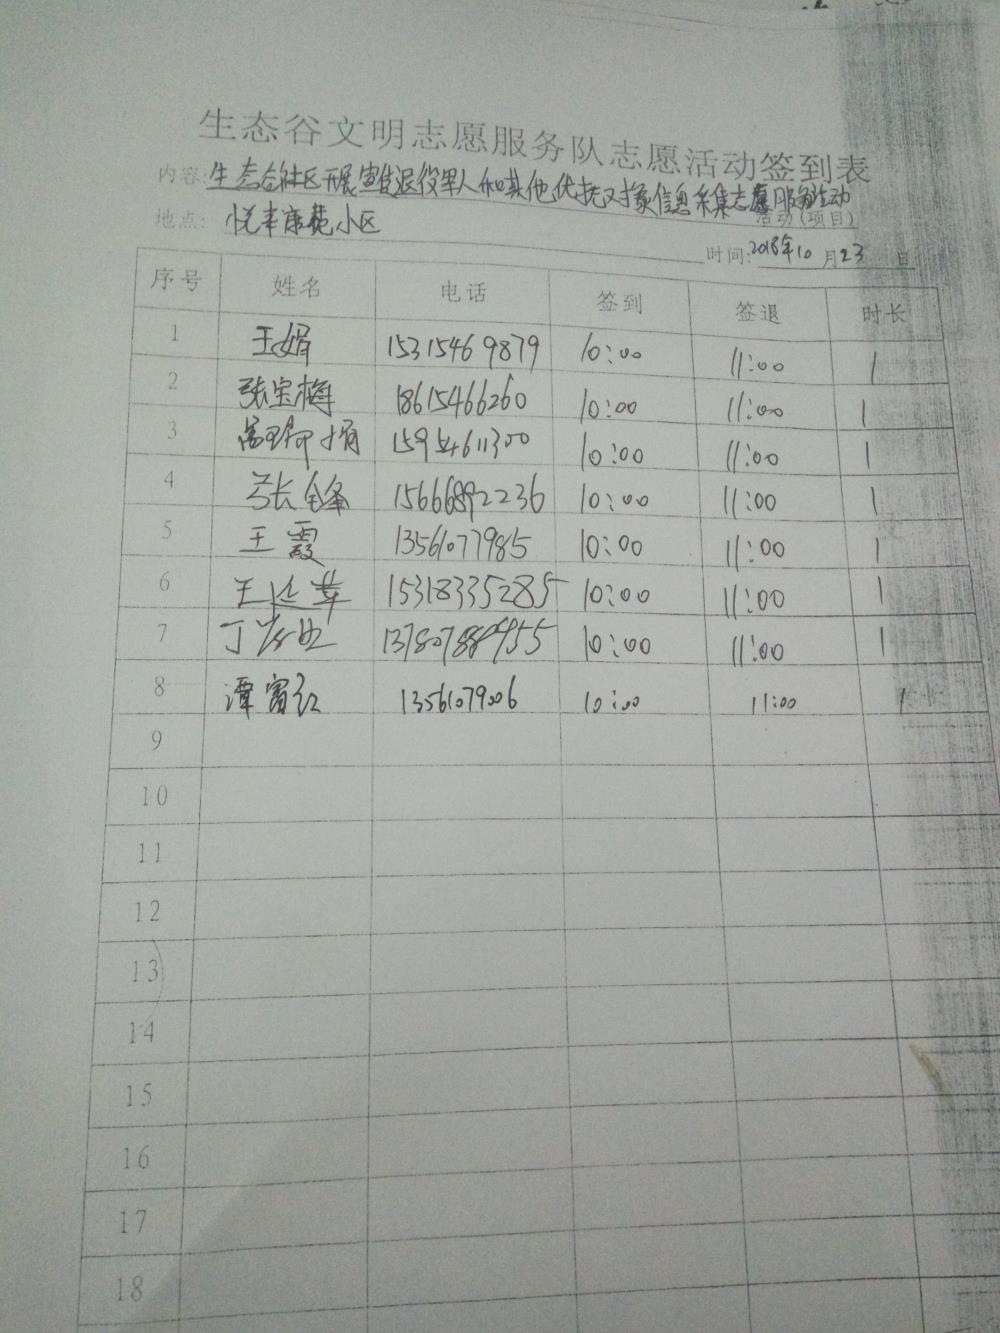 生态谷文明志愿服务队志愿活动签到表
内容:生态谷社区开展宣传退役军人和其他优抚对象信息采集志愿服务活动 活动(项目)
地点: 悦丰康苑小区
时间:2018年10月23日
序号 姓名 电话 签到 签退 时长
1 王娟 15315469879 10:00 11:00 1
2 张宝梅 18615466260 10:00 11:00 1
3 15954611300 10:00 11:00 1
4 张锋 15666892236 10:00 11:00 1
5 王霞 13561077985 10:00 11:00 1
6 王延苹 15318335285 10:00 11:00 1
7 10:00 11:00 1
8 谭富红 13561079006 10:00 11:00 1
9
10
11
12
13
14
15
16
17
18